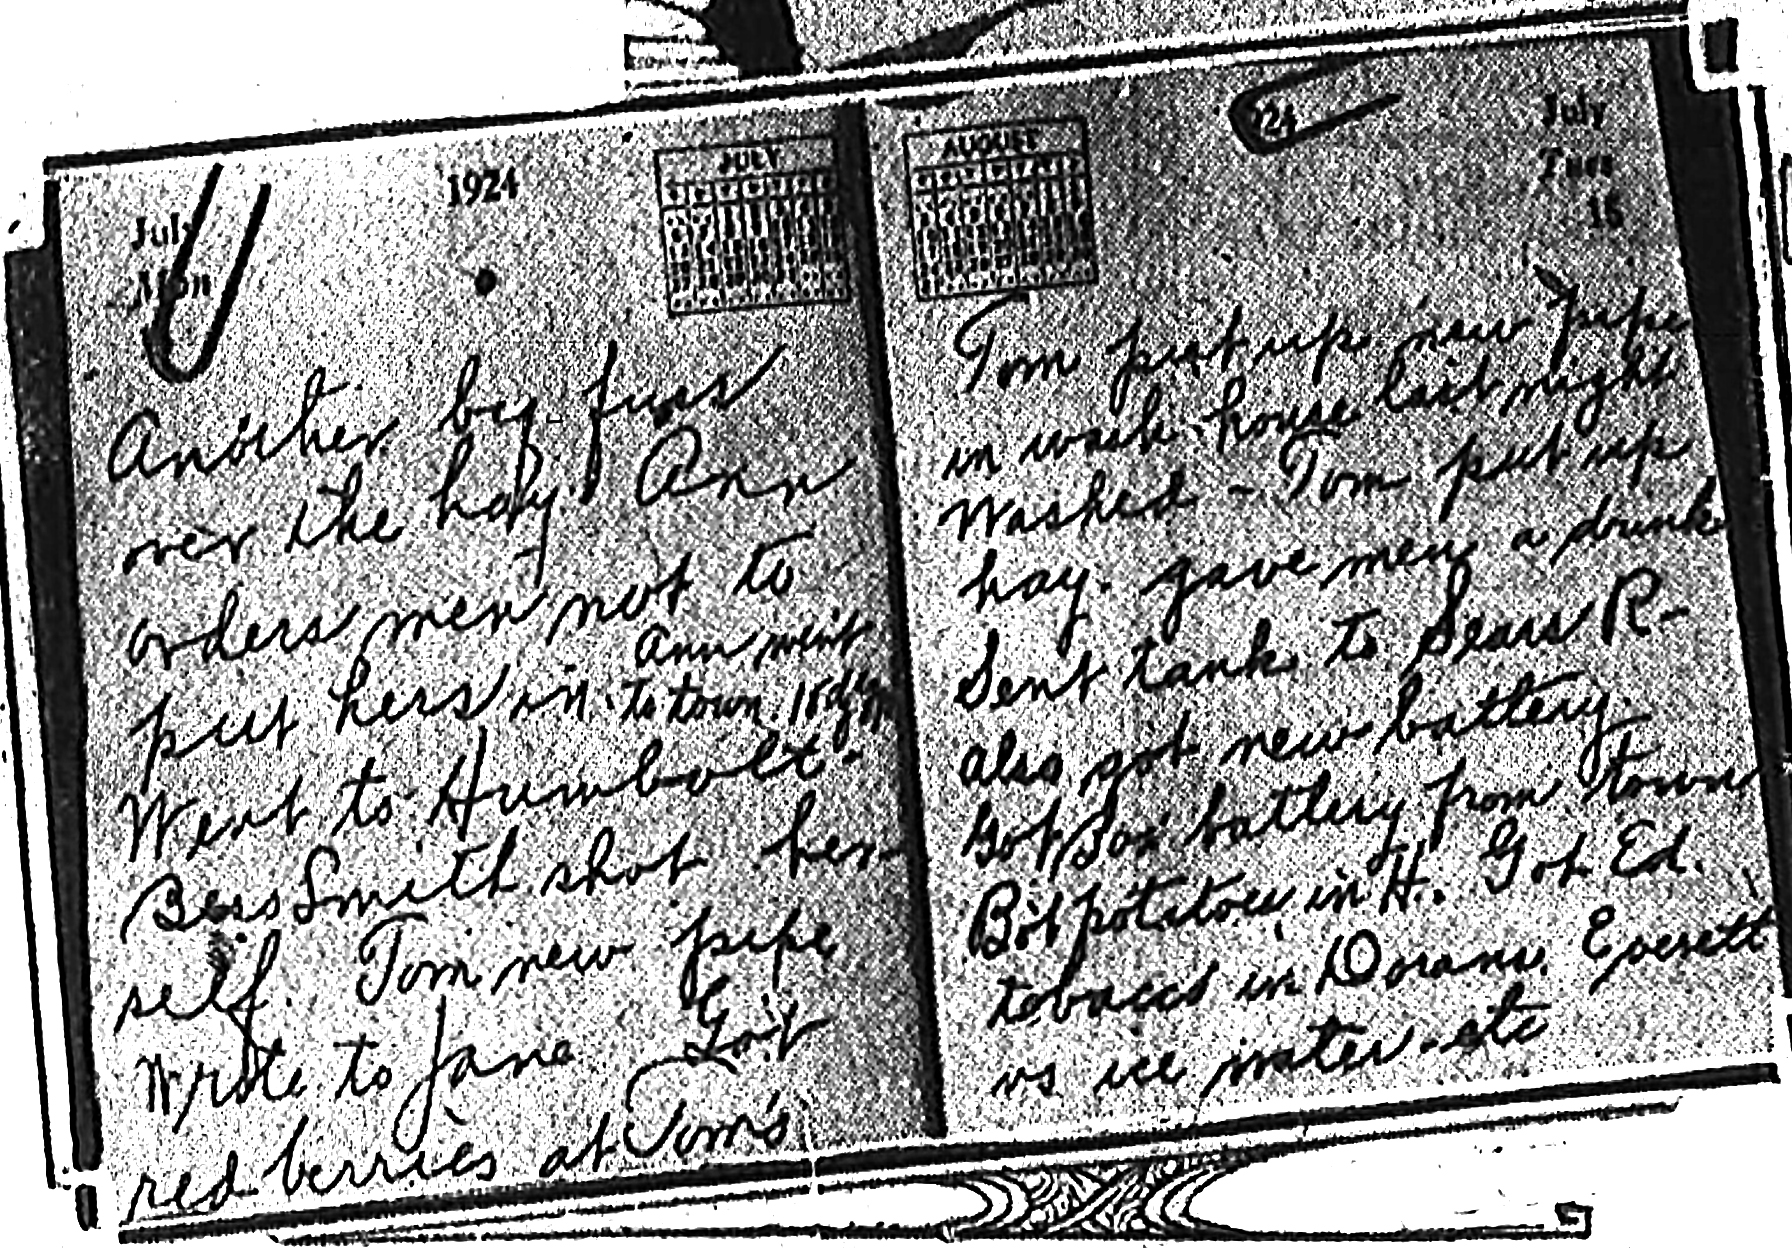 July
Mon
1924
JULY
Another big fuss
over the hay. Ann
orders men not to
put hers in. Ann went
to town.
Went to Humbolt-
Bess Smith shot her-
self. Tom new pipe
Wrote to Jane Got
red berries at Tom's
AUGUST
24
July
Tues
15
Tom put up new pipe
in wash house last night
Washed - Tom put up
hay. gave men a drink
Sent tank to Sears R-
also got new battery.
Got battery from town
potatoes in H. Got Ed.
tobacco in Dorans. Everett
vs ice water - etc